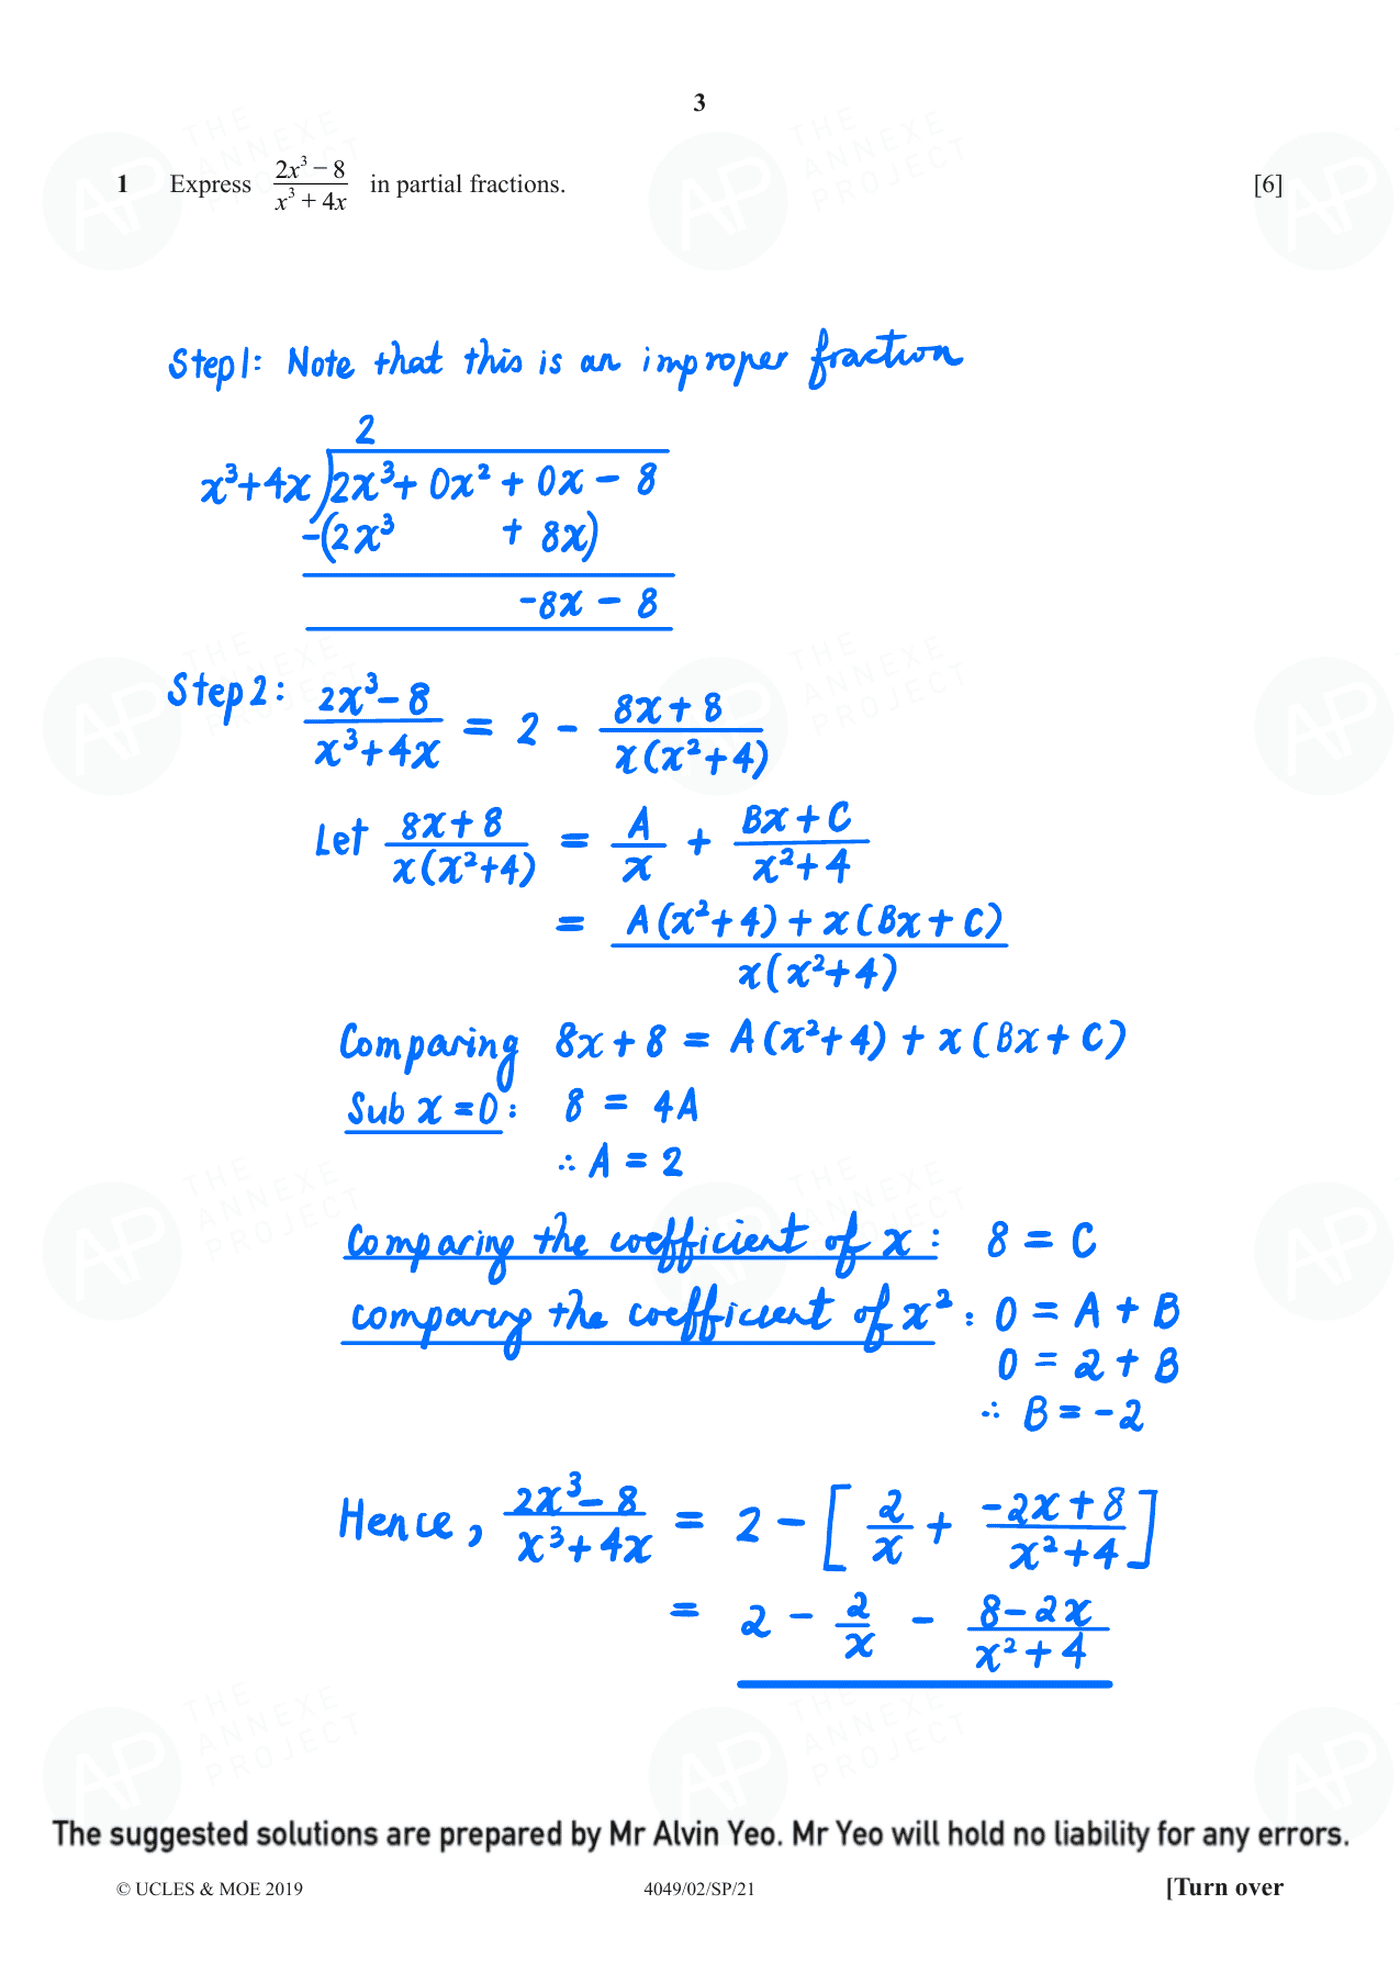 3
1 Express (2x³ − 8)/(x³ + 4x) in partial fractions. [6]
Step 1: Note that this is an improper fraction
2
x³+4x ) 2x³ + 0x² + 0x − 8
−(2x³ + 8x)
−8x − 8
Step 2: (2x³ − 8)/(x³ + 4x) = 2 − (8x + 8)/(x(x² + 4))
Let (8x + 8)/(x(x² + 4)) = A/x + (Bx + C)/(x² + 4)
= (A(x² + 4) + x(Bx + C))/(x(x² + 4))
Comparing 8x + 8 = A(x² + 4) + x(Bx + C)
Sub x = 0: 8 = 4A
∴ A = 2
Comparing the coefficient of x: 8 = C
comparing the coefficient of x²: 0 = A + B
0 = 2 + B
∴ B = −2
Hence, (2x³ − 8)/(x³ + 4x) = 2 − [2/x + (−2x + 8)/(x² + 4)]
= 2 − 2/x − (8 − 2x)/(x² + 4)
The suggested solutions are prepared by Mr Alvin Yeo. Mr Yeo will hold no liability for any errors.
© UCLES & MOE 2019 4049/02/SP/21 [Turn over
AP THE ANNEXE PROJECT